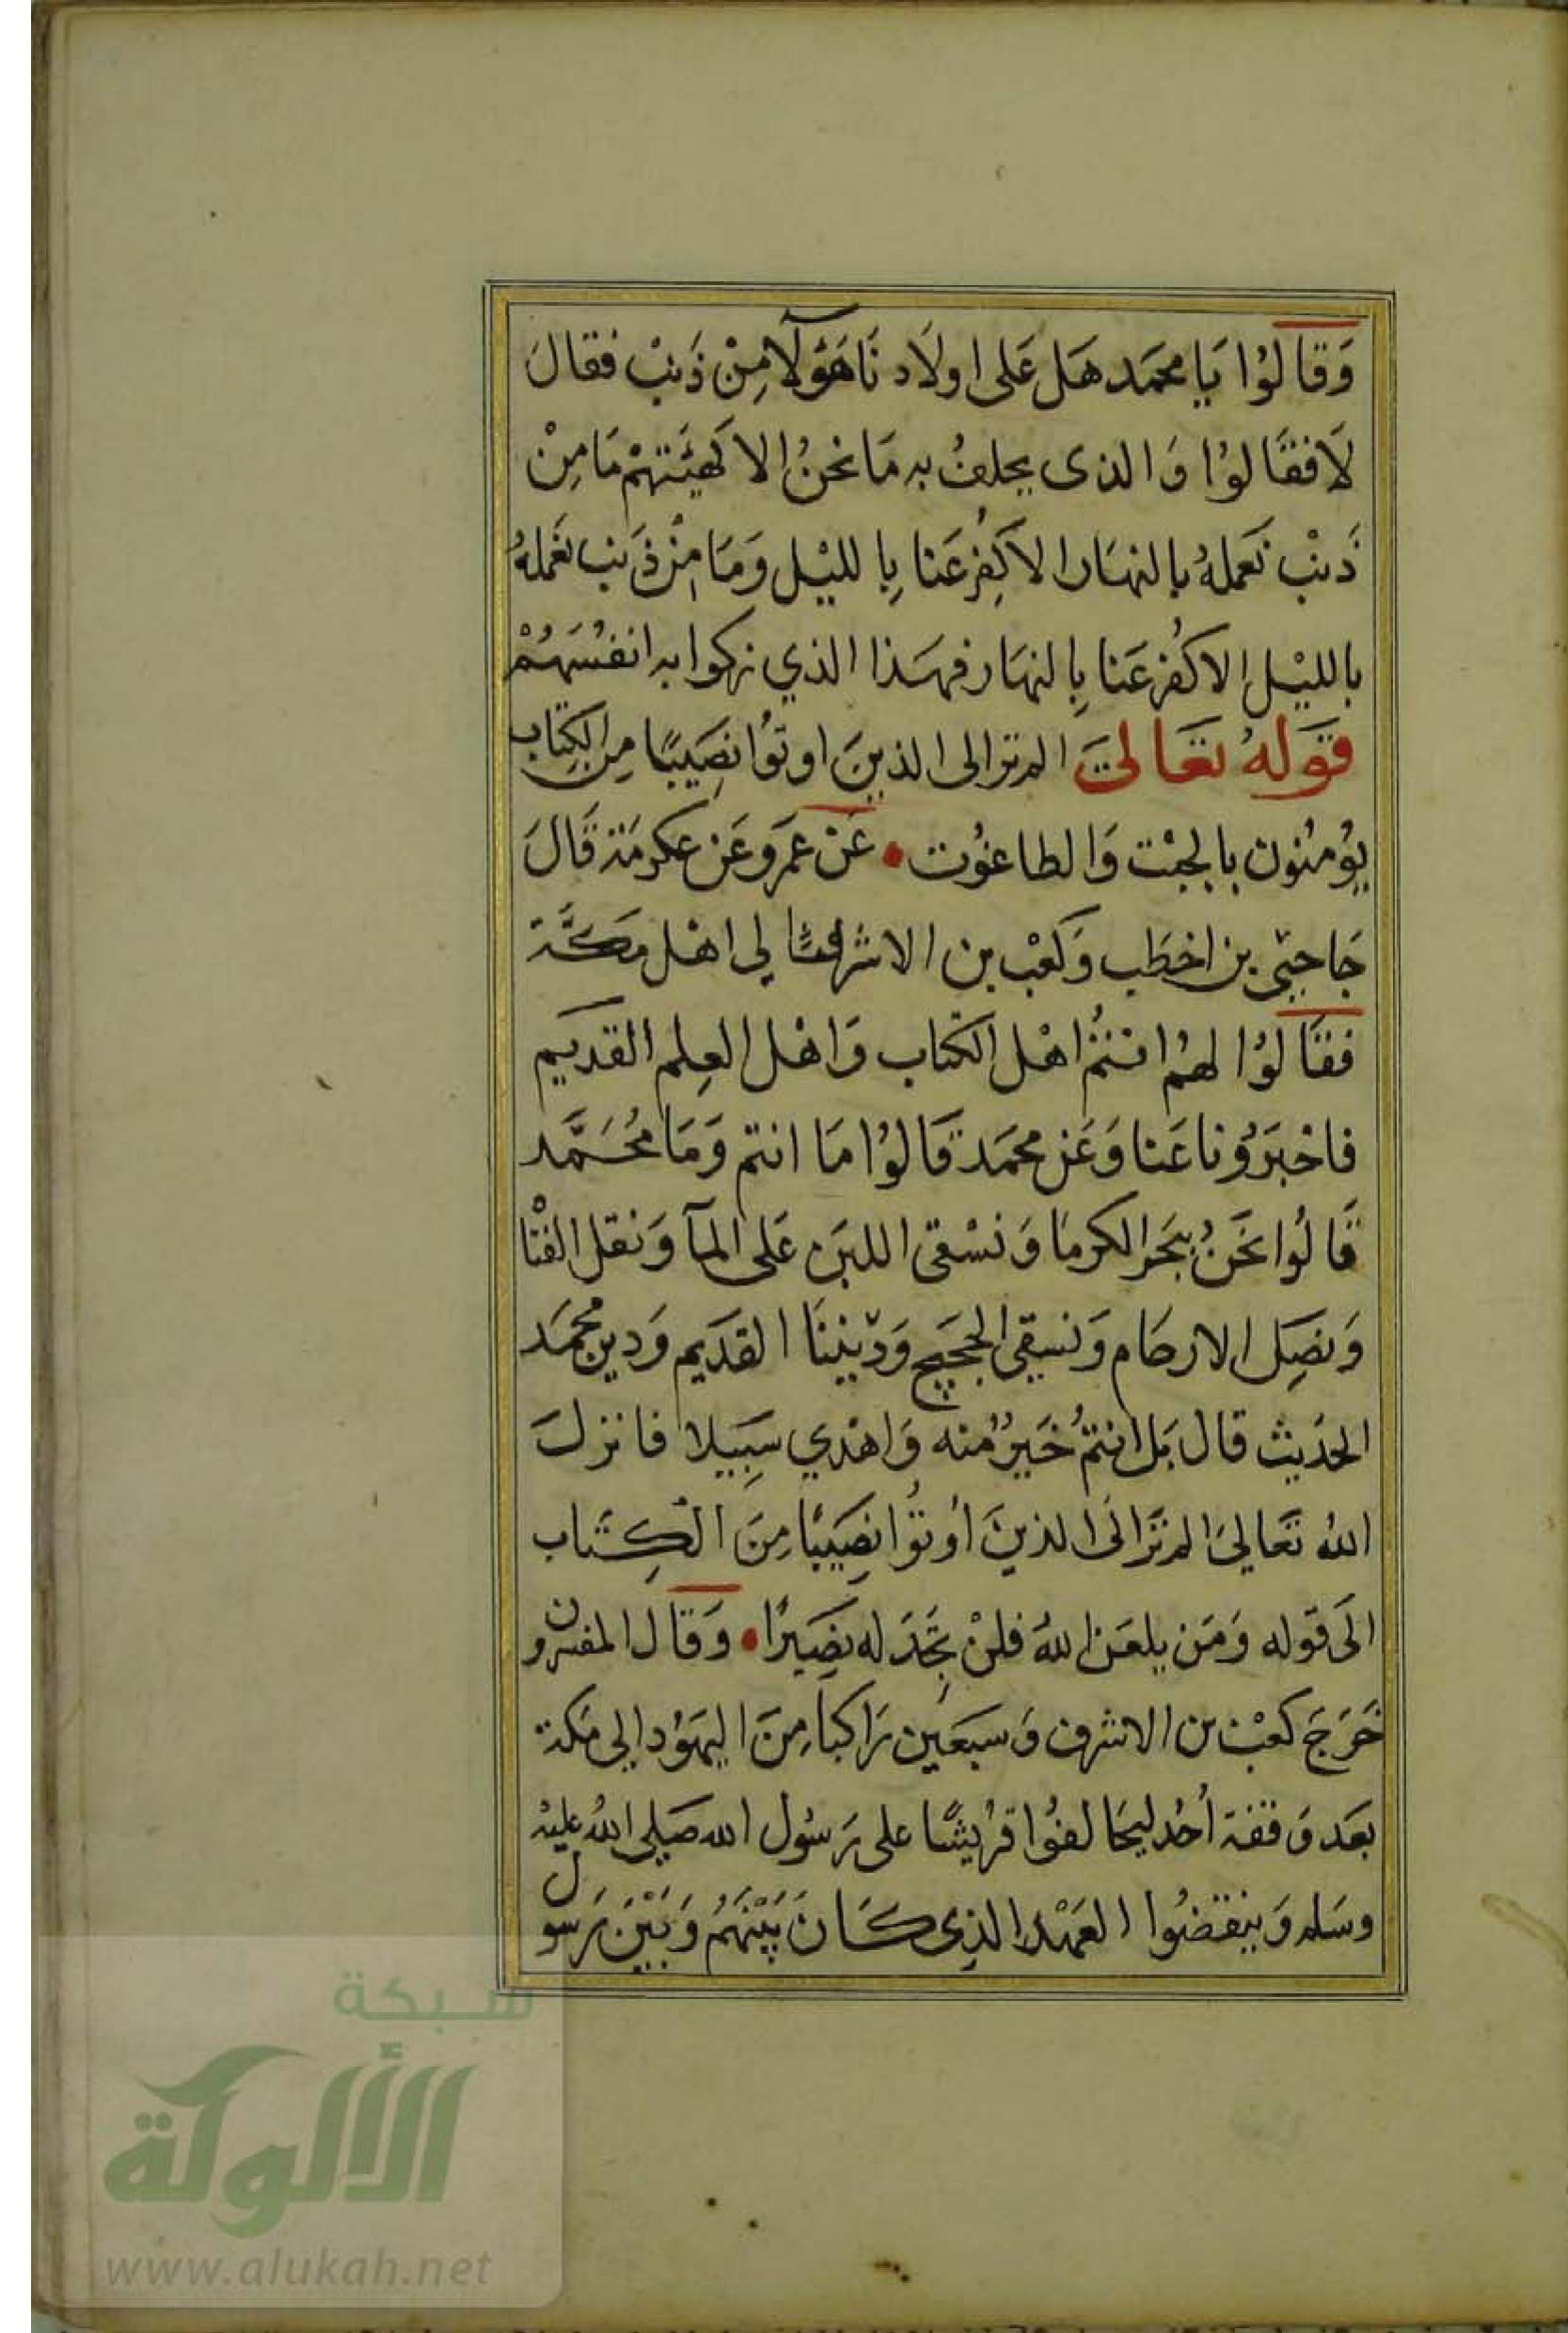 وَقَالوُا يَا محمَد هَل عَلى اولَاد نَا هَؤلآ مِنْ ذَنبْ فقالَ
لَا فقَالوُا وَالذى يحلفُ به مَا نحنُ الا كَهيَئتهمْ مَا مِنْ
ذَنبْ نَعملهُ بالنهَار الا كُفِرْ عَنا بِالليْل وَمَا مِنْ ذَنب نعَملهُ
بالليْل الا كُفرْ عَنا بِالنهَار فهَذا الذي زكوا به انفُسَهُمْ
قَولهُ تعَالىَ الم تر الى الذينَ اوتوُا نصِيَبًا مِنَ الكِتَاب
يؤُمنُون بالجبْت وَالطاغوُت • عَنْ عمَرو عَن عكرمَة قَالَ
جَا حيَي بن اخطَب وَكعْب بن الاشرف الي اهْل مَكَّة
فقَالوُا لهمُ انتمُ اهْل الكتَاب وَاهْل العِلم القديم
فاخْبَروُنا عَنا وَعَن محمَد قَالوُا مَا انتم وَمَا مُحَمَّد
قَالُوا نَحَنُ ننحَر الكومَا وَنسْقى اللبَن عَلى المآ وَنفك العْنَا
وَنصِل الارحَام وَنسقي الحجَيج وَديننَا القدَيم وَدين محمَد
الحَديث قال بَل انتمُ خَيرُ منه وَاهْدي سَبِيلا فانزلَ
اللهُ تعَاليَ الم تَرَ الىَ الذينَ أوُتوُا نصِيَبًا مِنَ الْكِتَاب
الَى قوْله وَمَن يلعَن اللهُ فلنْ تَجَدَ له نصَيرًا • وَقَال المفسرون
خَرجَ كعْبْ بن الاشرف وَسبعَين رَاكبًا مِنَ اليهوُد الي مَكة
بعَد وَقعَة أحُد ليحَالفوُا قرُيشًا على رَسُول الله صَلي اللهُ عليْه
وسَلم وَينقضُوا العَهْد الذِى كَانَ بَيْنهَمُ وَبَيْنَ رَسول
شبكة
الألوكة
www.alukah.net